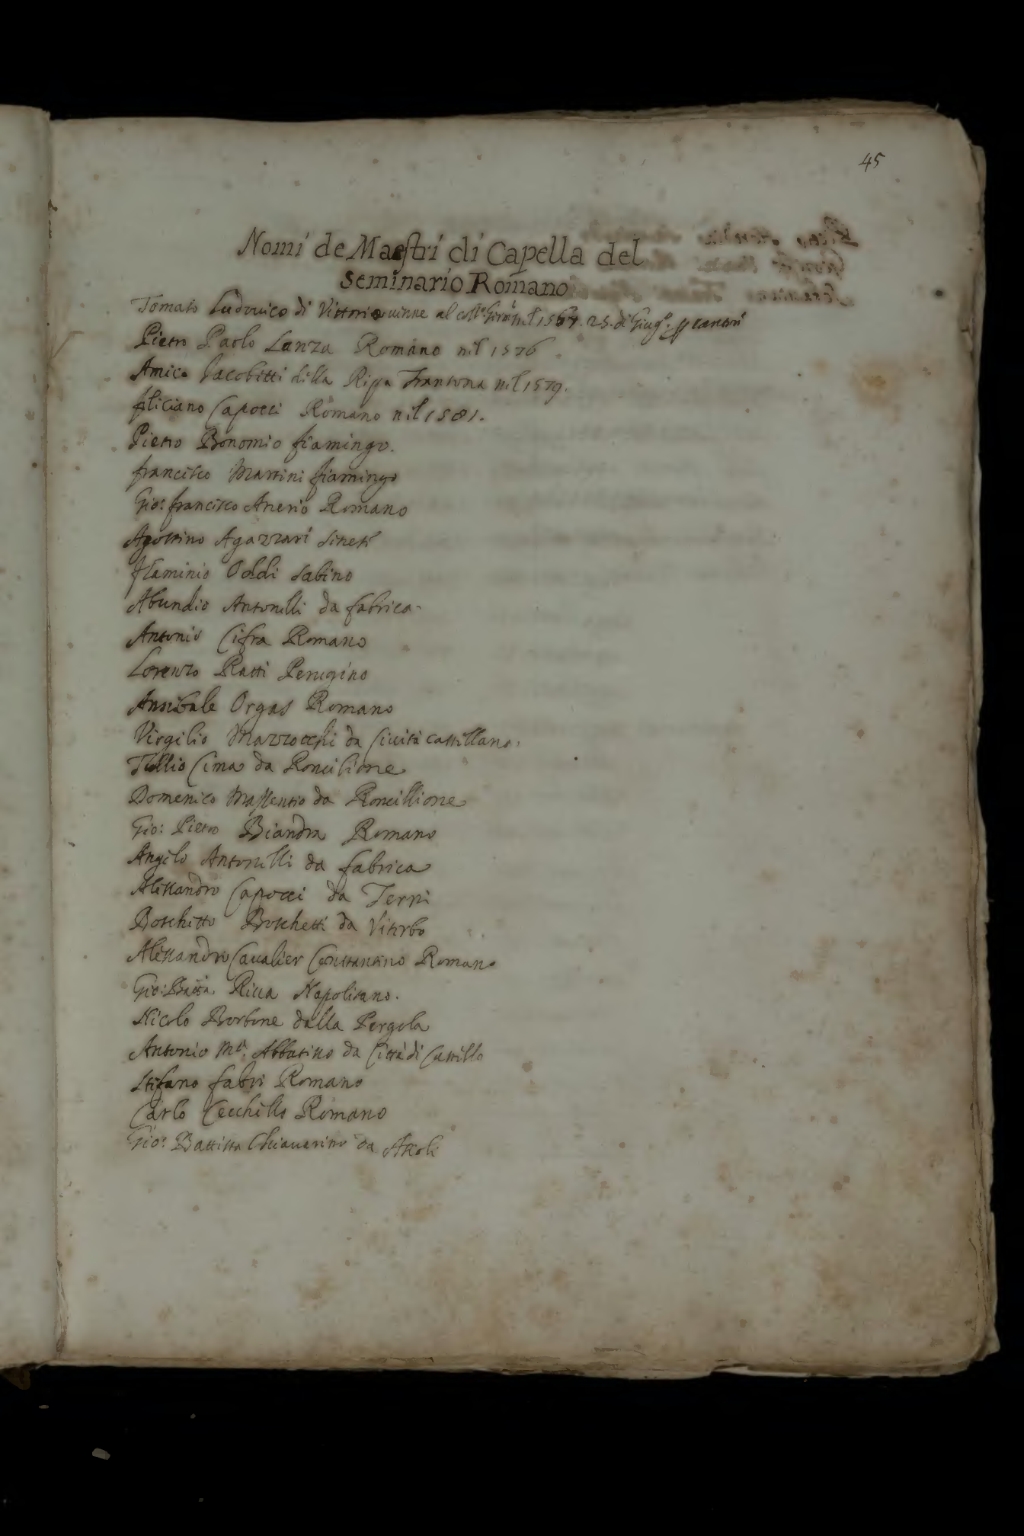 45
Nomi de Maestri di Capella del
Seminario Romano
Tomaso Ludovico di Vittoria venne al 25. di Giug.
Pietro Paolo Lanza Romano nel 1576
Amico Jacobetti della Ripa Trantona nel 1579.
feliciano Capocci Romano nel 1581.
Pietro Bonomio fiamingo.
francesco Martini fiamingo
Gio: francesco Anerio Romano
Agostino Agazzari
flaminio Oddi Sabino
Abundio Antonelli da fabrica.
Antonio Cifra Romano
Lorenzo Ratti Perugino
Annibale Orgas Romano
Virgilio Mazzocchi da Civita castellana.
Tullio Cima da Roncilione
Domenico Massentio da Roncillione
Gio: Pietro Biandra Romano
Angelo Antonelli da fabrica
Alessandro Capocci da Terni
Boschetto Boschetti da Viterbo
Alessandro Cavalier Constantino Romano
Gio: Batta. Ricca Napolitano.
Nicolo Borbone dalla Pergola
Antonio Ma. Abbatino da Città di Castello
Stefano fabri Romano
Carlo Cecchello Romano
Gio: Battista Chiaverino da Ascoli